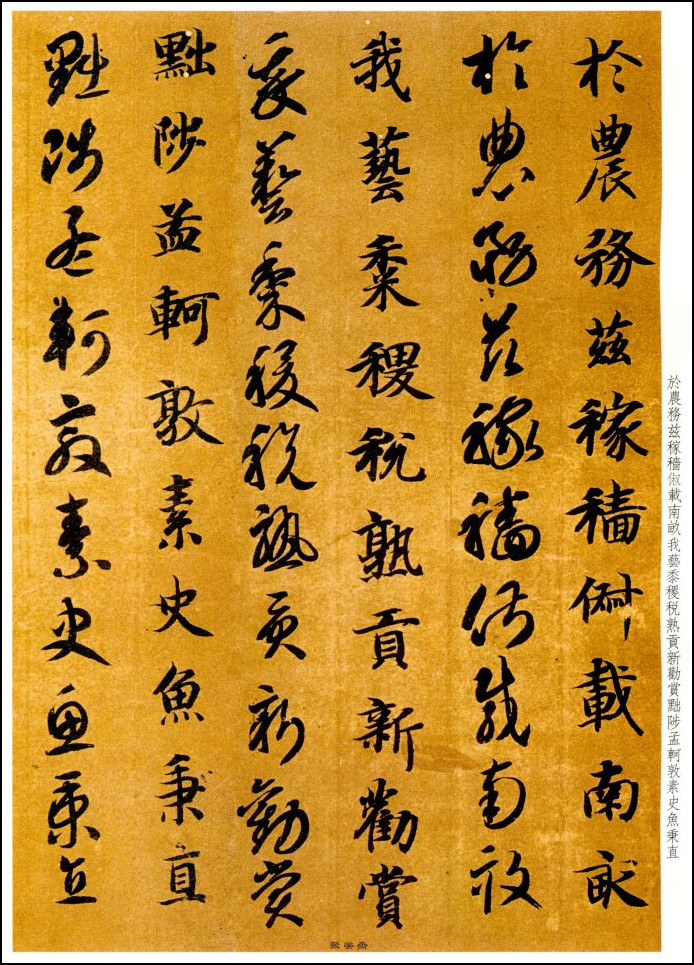 於農務兹稼穡俶載南畝我藝黍稷税熟貢新勸賞黜陟孟軻敦素史魚秉直
於農務茲稼穡俶載南畝
於農務茲稼穡俶載南畝
我藝黍稷税熟貢新勸賞
我藝黍稷税熟貢新勸賞
黜陟孟軻敦素史魚秉直
黜陟孟軻敦素史魚秉直